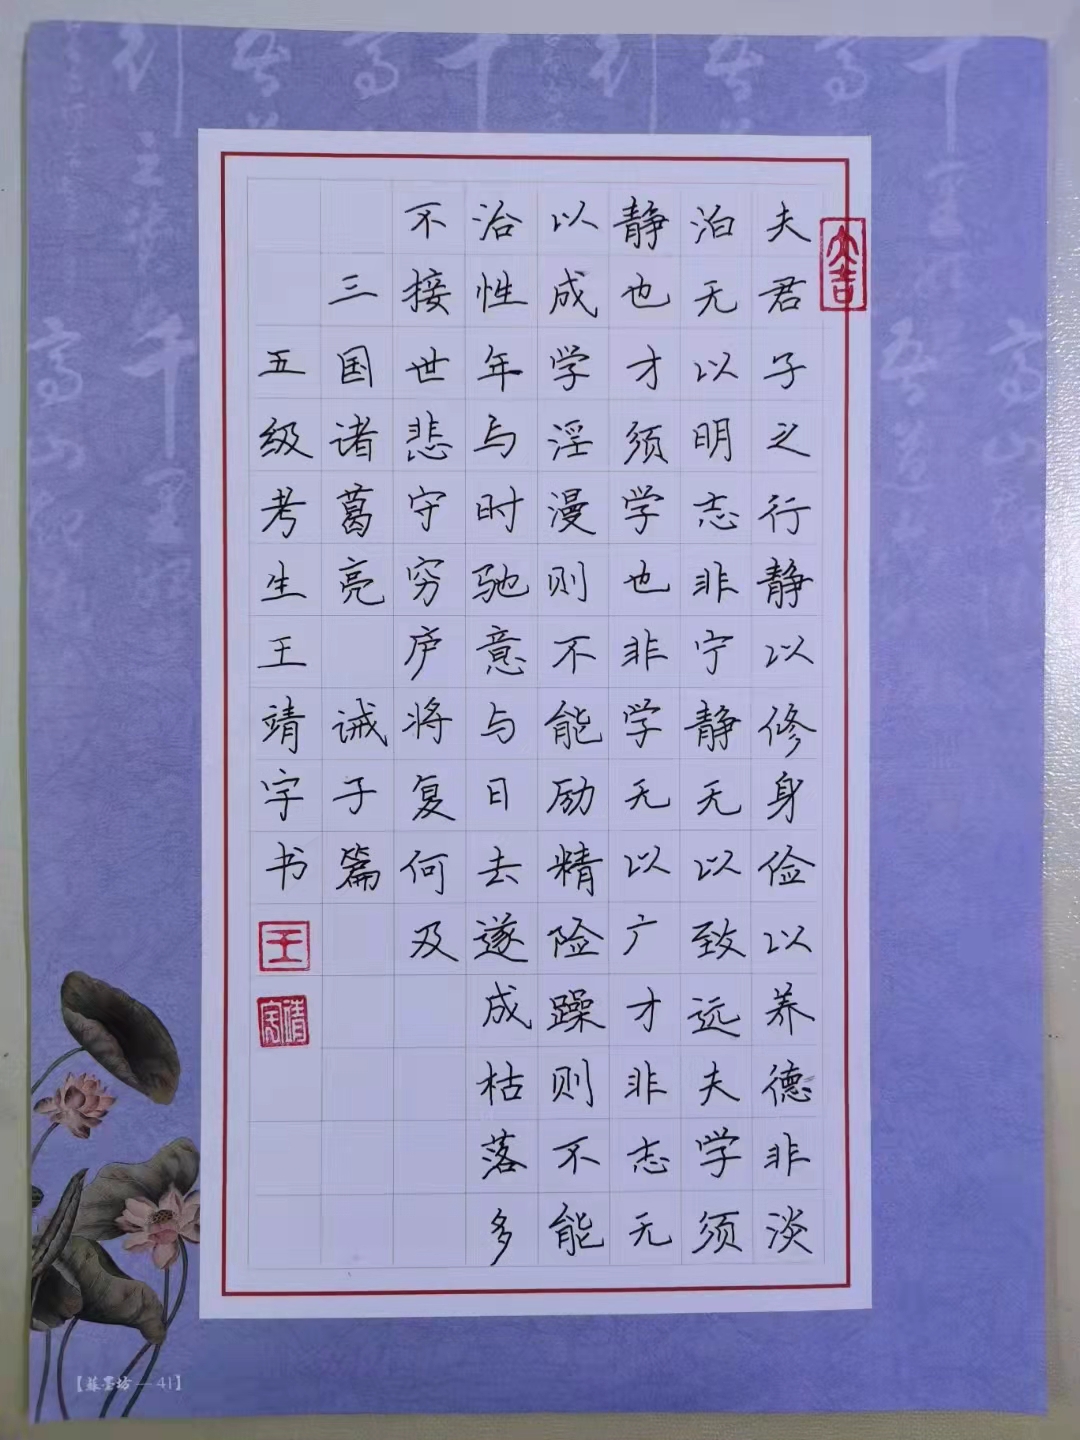 夫君子之行静以修身俭以养德非淡
泊无以明志非宁静无以致远夫学须
静也才须学也非学无以广才非志无
以成学淫漫则不能励精险躁则不能
治性年与时驰意与日去遂成枯落多
不接世悲守穷庐将复何及
三国诸葛亮 诫子篇
五级考生王靖宇书
大吉
王
靖宇
【苏墨坊—41】